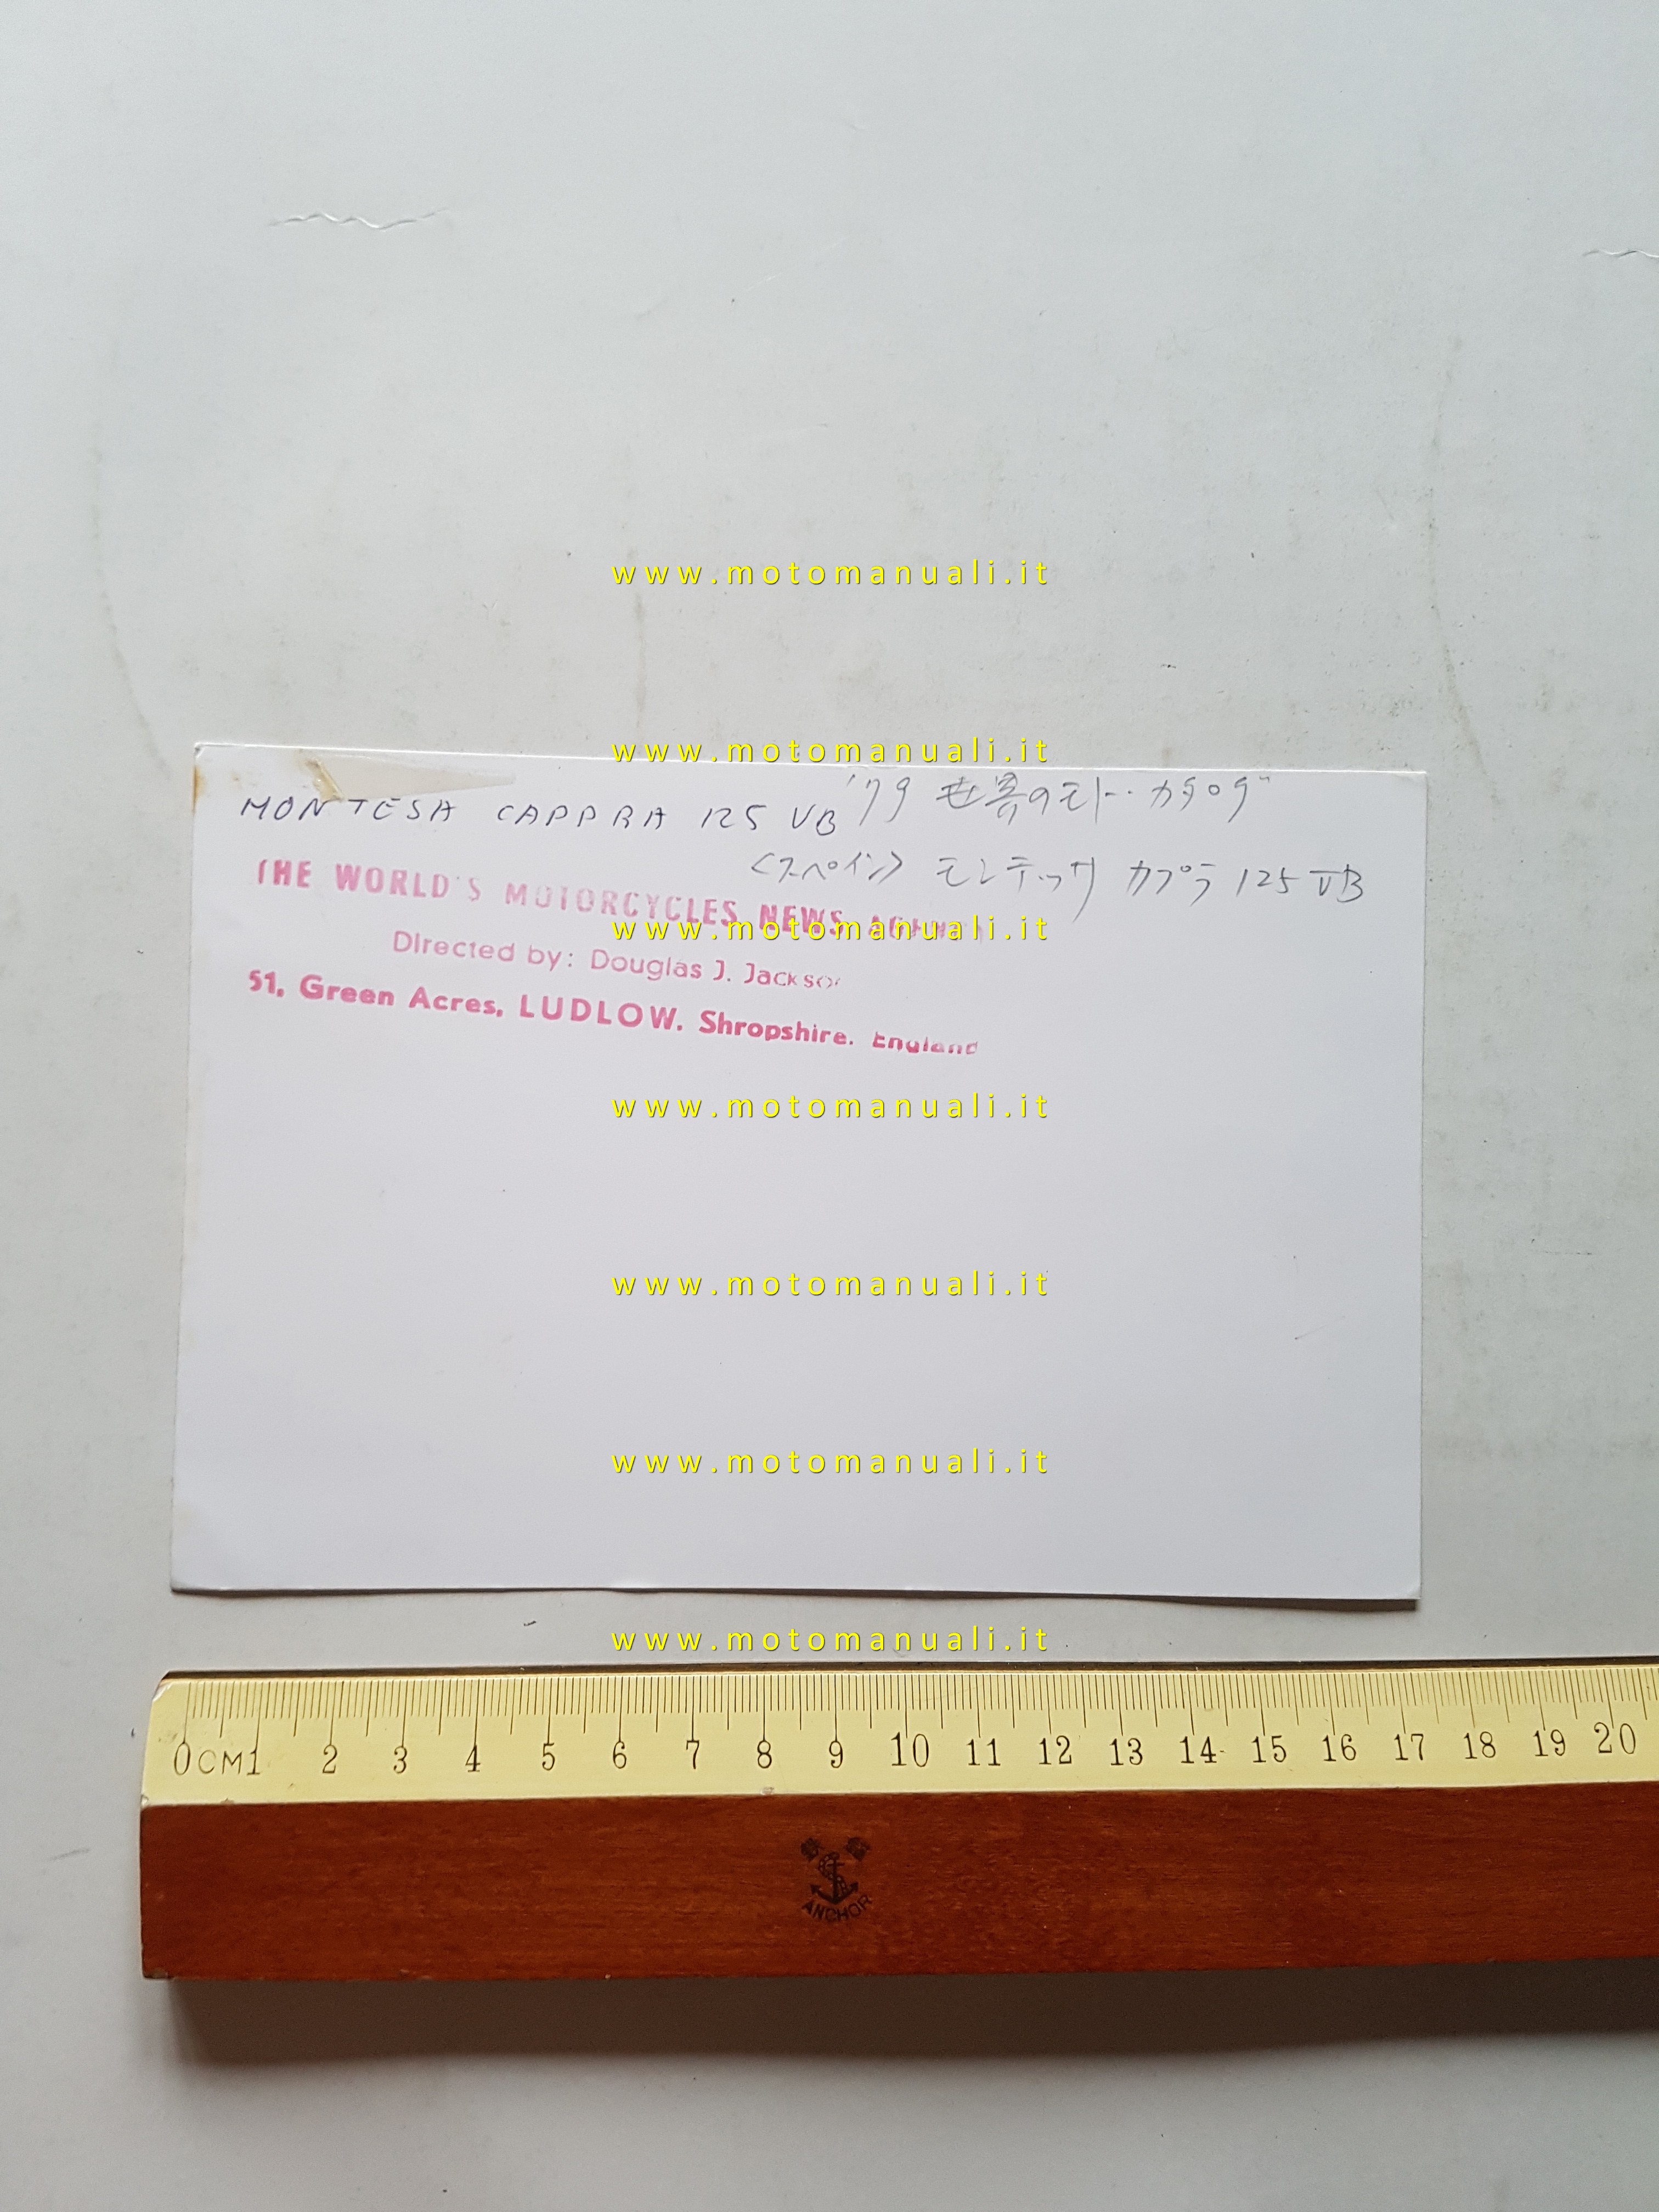 www.motomanuali.it
www.motomanuali.it
MONTESA CAPPRA 125 VB '79 世界のモト・・カタログ
<スペイン> モンテッサ カプラ 125 VB
THE WORLD'S MOTORCYCLES NEWS AGENCY
www.motomanuali.it
Directed by: Douglas J. Jackson
51, Green Acres, LUDLOW. Shropshire. England
www.motomanuali.it
www.motomanuali.it
www.motomanuali.it
www.motomanuali.it
0CM1 2 3 4 5 6 7 8 9 10 11 12 13 14 15 16 17 18 19 20
ANCHOR